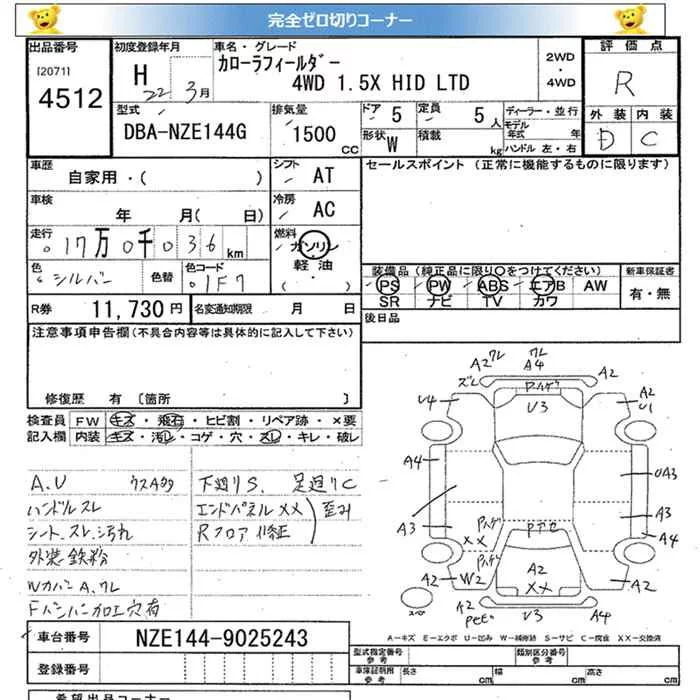 完全ゼロ切りコーナー
出品番号 初度登録年月 車名・グレード 評価点
[2071] H 22 3月 カローラフィールダー 2WD
4512 4WD 1.5X HID LTD 4WD R
型式 排気量 ドア 5 定員 5人 ディーラー・並行 外装 内装
DBA-NZE144G 1500cc 形状 W 積載 kg モデル年式 年 D C
ハンドル 左・右
車歴 シフト セールスポイント (正常に機能するものに限ります)
自家用・( ) AT
車検 冷房
年 月( 日) AC
走行 燃料
17万0千036km ガソリン
色 シルバー 色替 色コード 1F7 軽油・( )
装備品(純正品に限り〇をつけてください) 新車保証書
PS PW ABS エアB AW 有・無
SR ナビ TV カワ
R券 11,730円 名変通知期限 月 日 後日品
注意事項申告欄(不具合内容等は具体的に記入して下さい)
修復歴 有 [箇所 ]
検査員 FW キズ・飛石・ヒビ割・リペア跡・×要
記入欄 内装 キズ・汚レ・コゲ・穴・スレ・キレ・破レ
A.U 下廻りS. 足廻りC
ハンドルスレ エンドパネルXX 歪み
シート.スレ.汚れ Rフロア修正
外装鉄粉
WカバーA.ワレ
Fバンパー加工穴有
A2 ワレ ワレ A4 A2
ズレ
U4 U3 A2 U1
A4 UA3
A3 A3
A4
XX
A2 W2 A2 XX A2
A2 U3 A4
スペア
A-キズ E-エクボ U-凹み W-補修跡 S-サビ C-腐食 XX-交換済
車台番号 NZE144-9025243
登録番号
型式指定番号 参考 類別区分番号 参考
車庫証明用 参考 長さ cm 幅 cm 高さ cm
希望出品コーナー